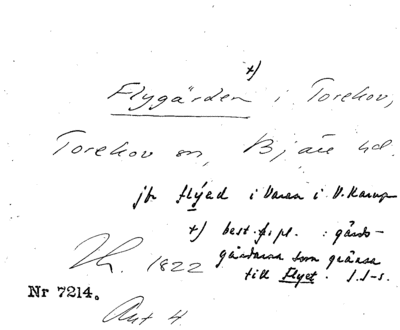 x)
Flygärden i Torekov,
Torekov sn, Bjäre hd.
jfr flyed i Varan i V. Karup
x) best. f. pl. : gärds-
gårdarna som gränsa
till Flyet. S. I-s.
Th. 1822
Nr 7214.
Ant 4